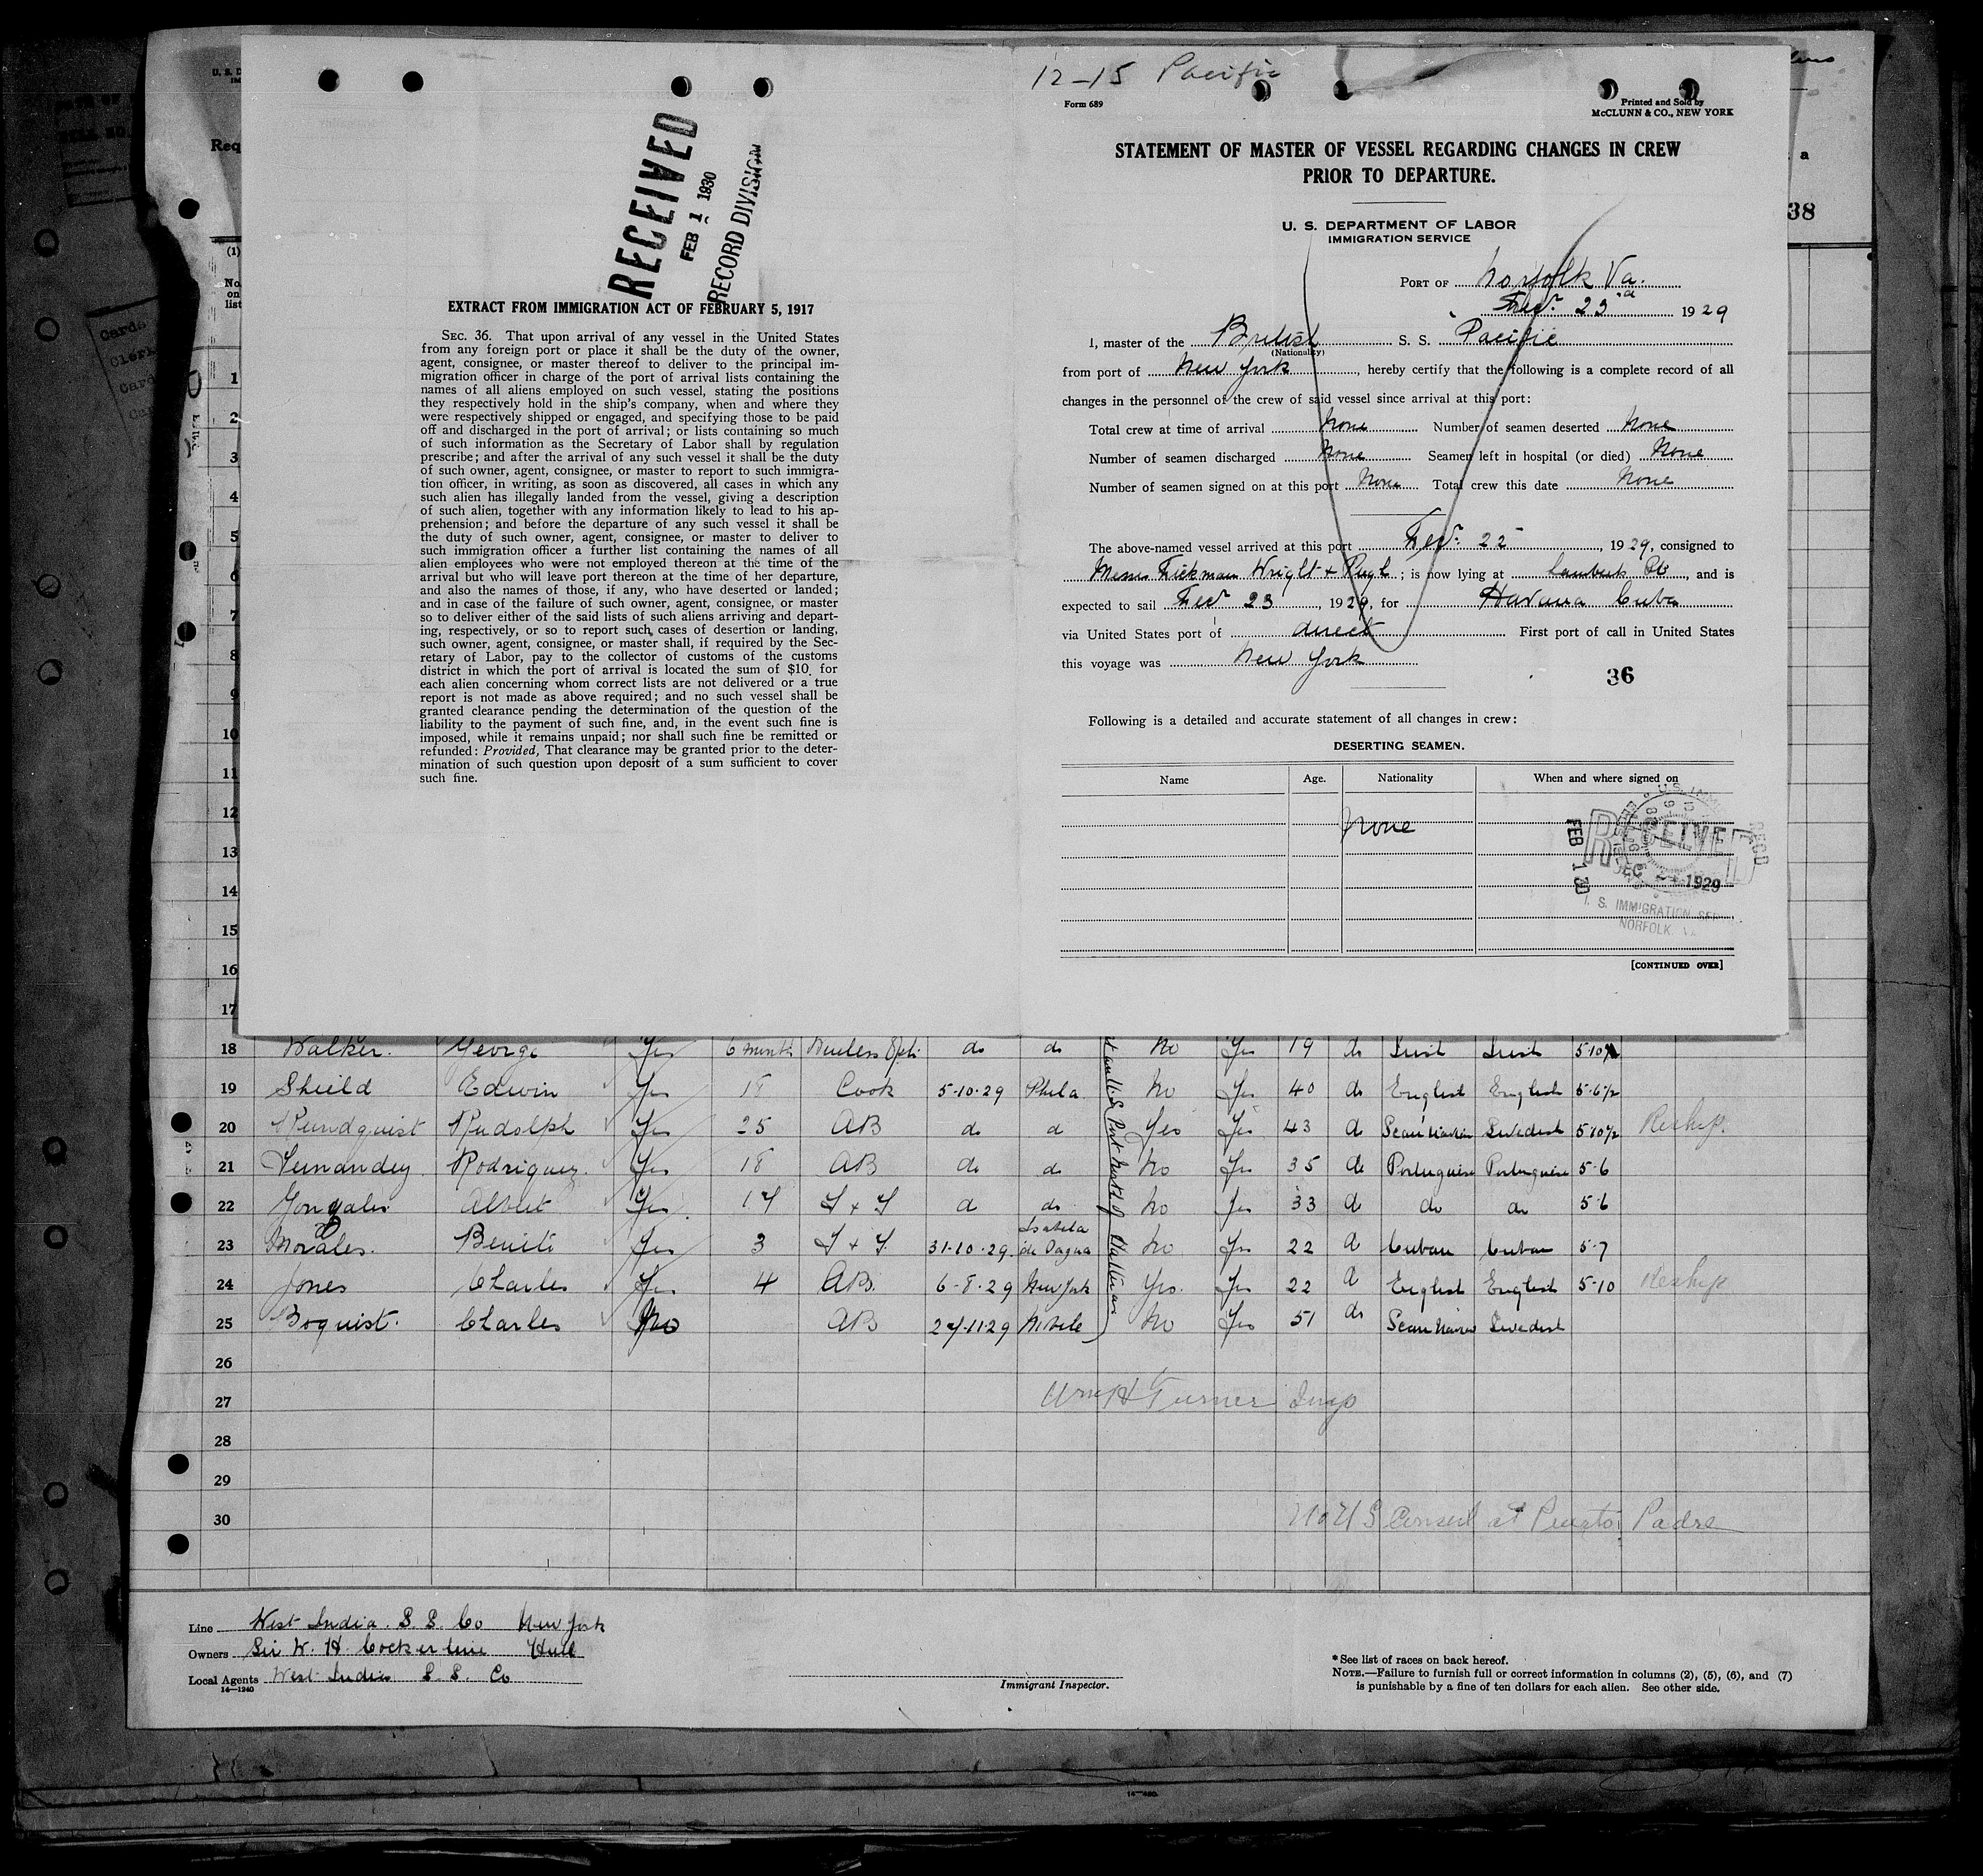 RECEIVED
FEB 1 1930
RECORD DIVISION
EXTRACT FROM IMMIGRATION ACT OF FEBRUARY 5, 1917
SEC. 36. That upon arrival of any vessel in the United States
from any foreign port or place it shall be the duty of the owner,
agent, consignee, or master thereof to deliver to the principal im-
migration officer in charge of the port of arrival lists containing the
names of all aliens employed on such vessel, stating the positions
they respectively hold in the ship's company, when and where they
were respectively shipped or engaged, and specifying those to be paid
off and discharged in the port of arrival; or lists containing so much
of such information as the Secretary of Labor shall by regulation
prescribe; and after the arrival of any such vessel it shall be the duty
of such owner, agent, consignee, or master to report to such immigra-
tion officer, in writing, as soon as discovered, all cases in which any
such alien has illegally landed from the vessel, giving a description
of such alien, together with any information likely to lead to his ap-
prehension; and before the departure of any such vessel it shall be
the duty of such owner, agent, consignee, or master to deliver to
such immigration officer a further list containing the names of all
alien employees who were not employed thereon at the time of the
arrival but who will leave port thereon at the time of her departure,
and also the names of those, if any, who have deserted or landed;
and in case of the failure of such owner, agent, consignee, or master
so to deliver either of the said lists of such aliens arriving and depart-
ing, respectively, or so to report such cases of desertion or landing,
such owner, agent, consignee, or master shall, if required by the Sec-
retary of Labor, pay to the collector of customs of the customs
district in which the port of arrival is located the sum of $10 for
each alien concerning whom correct lists are not delivered or a true
report is not made as above required; and no such vessel shall be
granted clearance pending the determination of the question of the
liability to the payment of such fine, and, in the event such fine is
imposed, while it remains unpaid; nor shall such fine be remitted or
refunded: Provided, That clearance may be granted prior to the deter-
mination of such question upon deposit of a sum sufficient to cover
such fine.
12-15 Pacific
Form 689
Printed and Sold by
McCLUNN & CO., NEW YORK
STATEMENT OF MASTER OF VESSEL REGARDING CHANGES IN CREW
PRIOR TO DEPARTURE.
U. S. DEPARTMENT OF LABOR
IMMIGRATION SERVICE
PORT OF Norfolk Va.
23rd 1929
I, master of the British S. S. Pacific
(Nationality)
from port of New York, hereby certify that the following is a complete record of all
changes in the personnel of the crew of said vessel since arrival at this port:
Total crew at time of arrival None Number of seamen deserted None
Number of seamen discharged None Seamen left in hospital (or died) None
Number of seamen signed on at this port None Total crew this date None
The above-named vessel arrived at this port 22, 1929, consigned to
Messrs Wright + Pugh; is now lying at Lamberts Pt, and is
expected to sail 23, 1929, for Havana Cuba
via United States port of direct First port of call in United States
this voyage was New York
36
Following is a detailed and accurate statement of all changes in crew:
DESERTING SEAMEN.
Name Age. Nationality When and where signed on
None
RECEIVED
FEB 1 30
DEC 24 1929
U. S. IMMIGRATION SERVICE
NORFOLK, VA
[CONTINUED OVER]
38
(1)
No. on list
1
2
3
4
5
6
7
8
9
10
11
12
13
14
15
16
17
18 Walker. George Yes 6 month Wireless Optr do do No Yes 19 do Irish Irish
19 Shield Edwin Yes 18 Cook 5-10-29 Phila No Yes 40 do English English 5-6½
20 Rundquist Rudolph Yes 25 AB do d Yes Yes 43 d Scandinavian Swedish 5-10½ Reship.
21 Fernandez Rodriguez. Yes 18 AB do do No Yes 35 do Portuguese Portuguese 5-6
22 Gonzales Albert Yes 17 F + T d do No Yes 33 d do do 5-6
23 Morales. Benito Yes 3 F + T. 31-10-29. Isabela de Sagua No Yes 22 d Cuban Cuban 5-7
24 Jones Charles Yes 4 AB. 6-8-29 New York Yes. Yes 22 d English English 5-10 Reship
25 Boquist. Charles No AB 27-11-29 Mobile No Yes 51 do Scandinavian Swedish
26
27 Wm H Turner Insp
28
29
30 No U S Consul at Puerto Padre
Line West India. S. S. Co New York
Owners Sir W. H. Cockerline Hull
Local Agents West India S. S. Co
14—1240
Immigrant Inspector.
*See list of races on back hereof.
NOTE.—Failure to furnish full or correct information in columns (2), (5), (6), and (7)
is punishable by a fine of ten dollars for each alien. See other side.